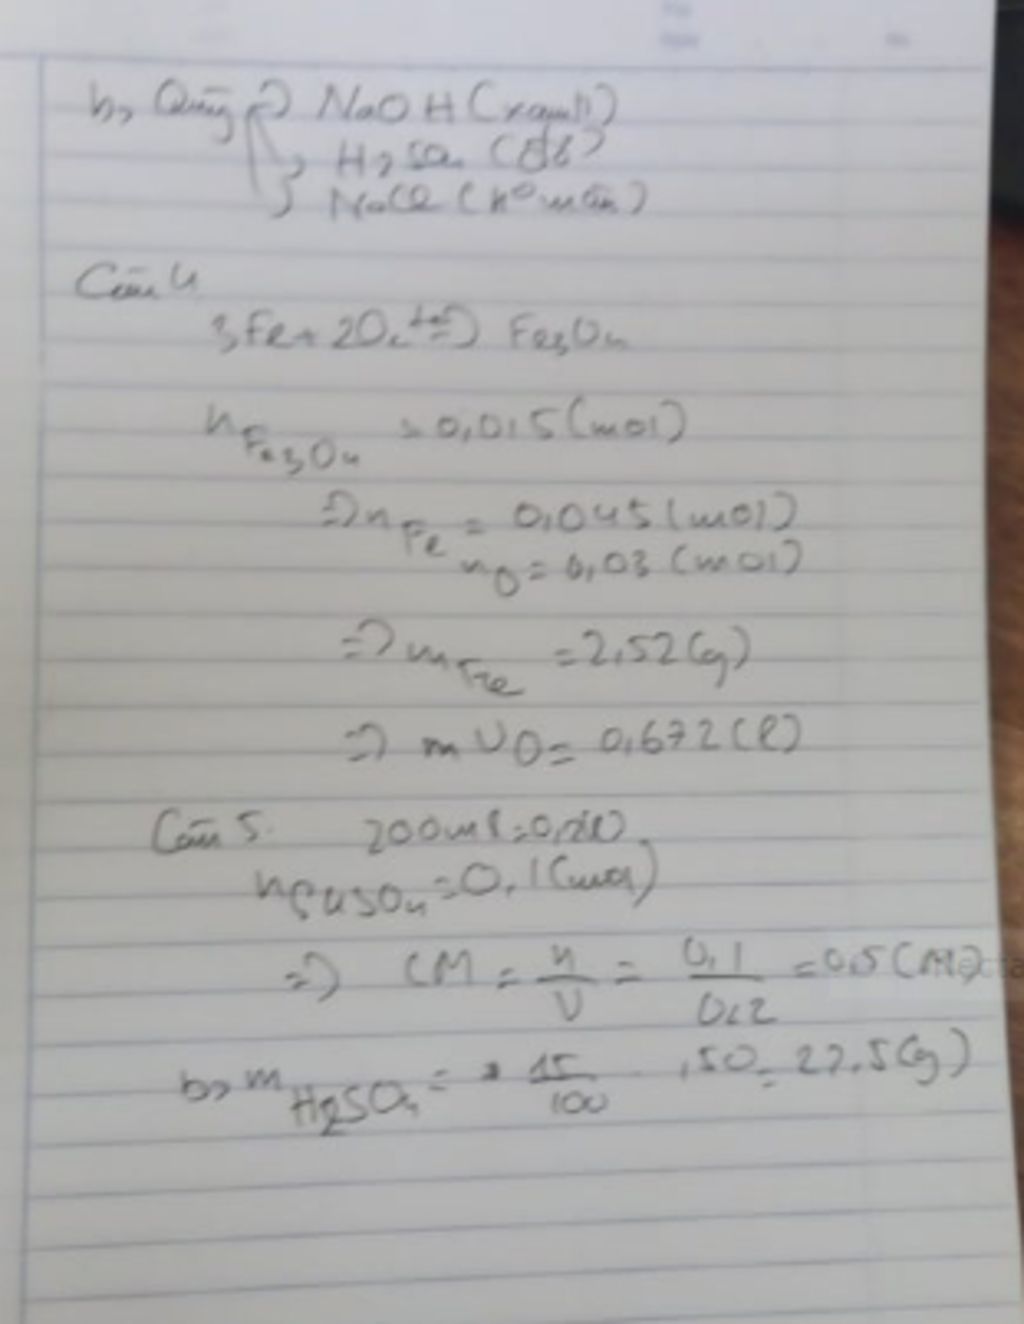 b, Quỳ => NaOH (xanh)
H2SO4 (đỏ)
NaCl (ko màu)
Câu 4
3Fe + 2O2 to=> Fe3O4
nFe3O4 = 0,015 (mol)
=> nFe = 0,045 (mol)
nO = 0,03 (mol)
=> mFe = 2,52 (g)
=> m VO = 0,672 (l)
Câu 5. 200ml = 0,2(l)
nCuSO4 = 0,1 (mol)
=> CM = n/V = 0,1/0,2 = 0,5 (M)
b, mH2SO4 = /100 . 150 = 22,5 (g)